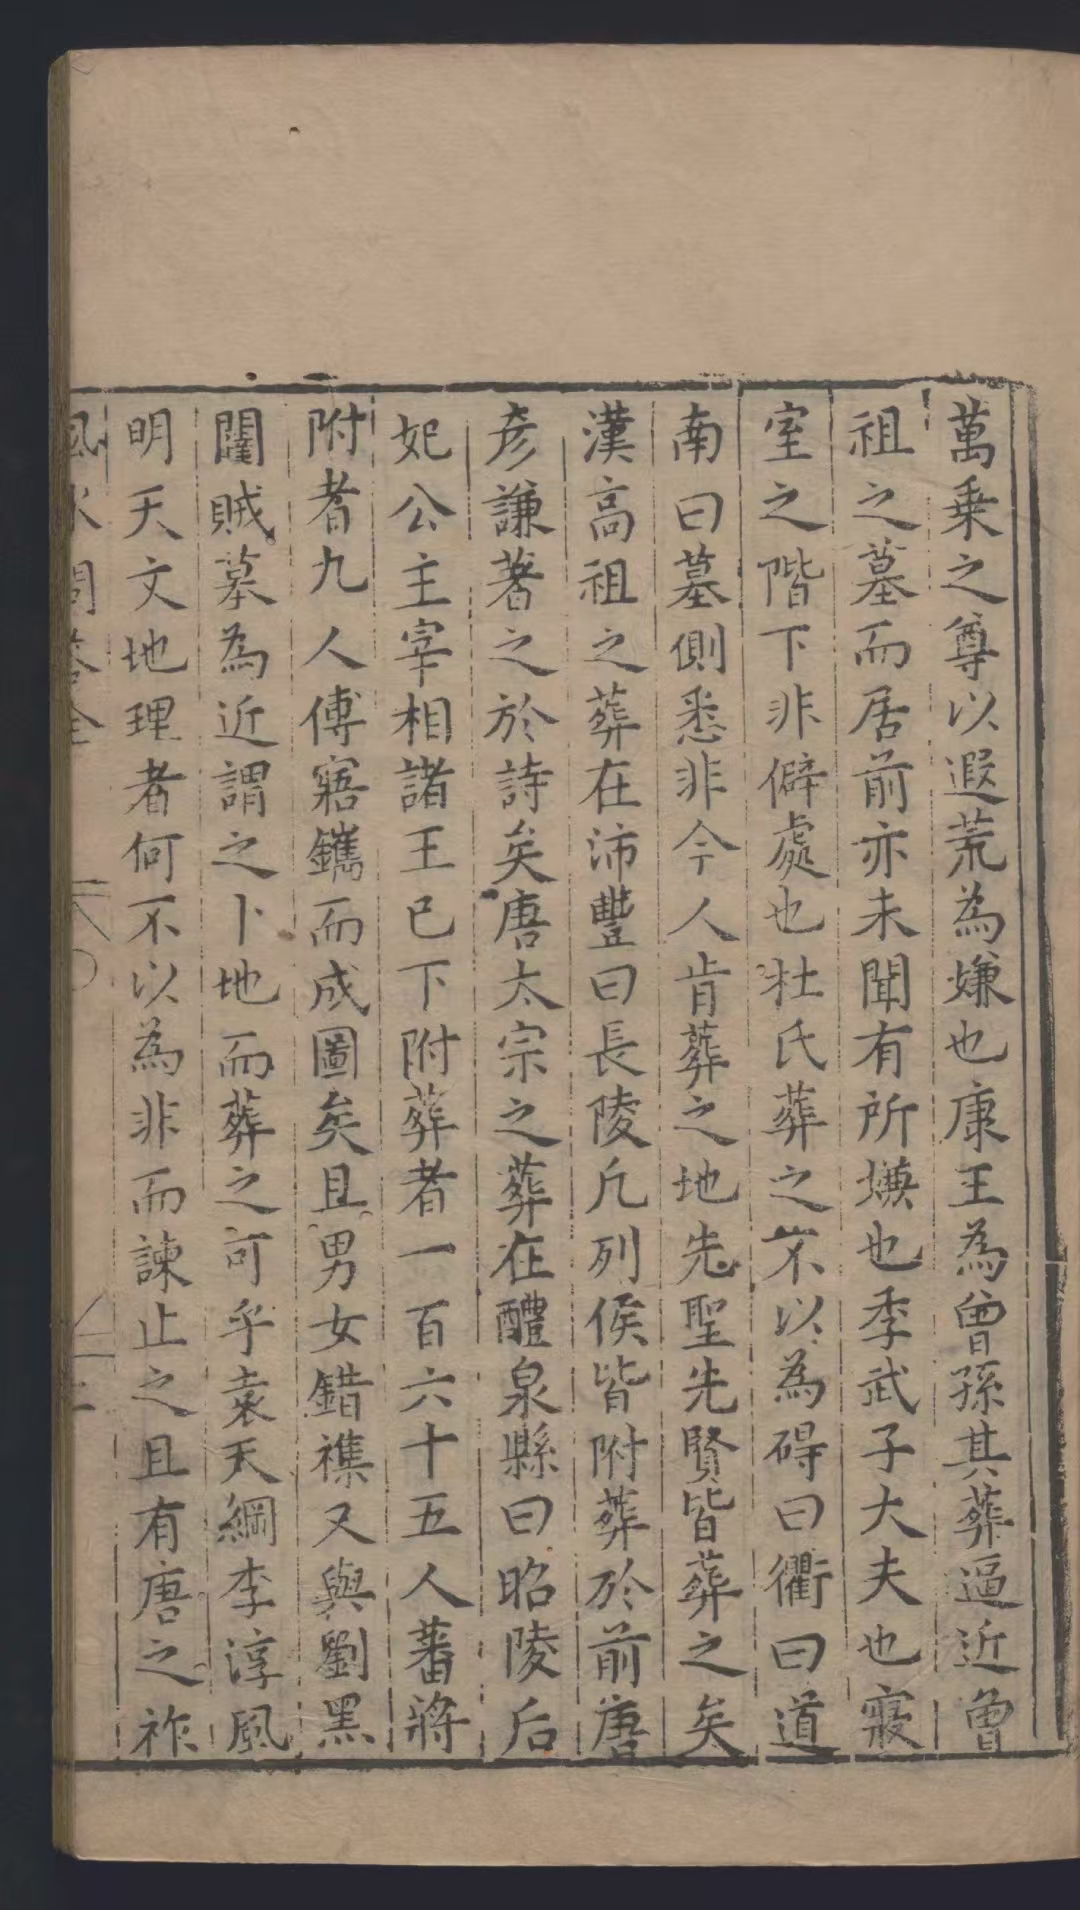 萬乗之尊以遐荒為嫌也康王為曾孫其葬逼近曾
祖之墓而居前亦未聞有所嫌也季武子大夫也寢
室之階下非僻處也杜氏葬之不以為碍曰衢曰道
南曰墓側悉非今人肯葬之地先聖先賢皆葬之矣
漢高祖之葬在沛豐曰長陵凢列侯皆附葬於前唐
彦謙著之於詩矣唐太宗之葬在醴泉縣曰昭陵后
妃公主宰相諸王已下附葬者一百六十五人蕃將
附者九人傅寤鑴而成圖矣且男女錯襍又與劉黑
闥賊墓為近謂之卜地而葬之可乎袁天綱李淳風
明天文地理者何不以為非而諫止之且有唐之祚
風水問答全